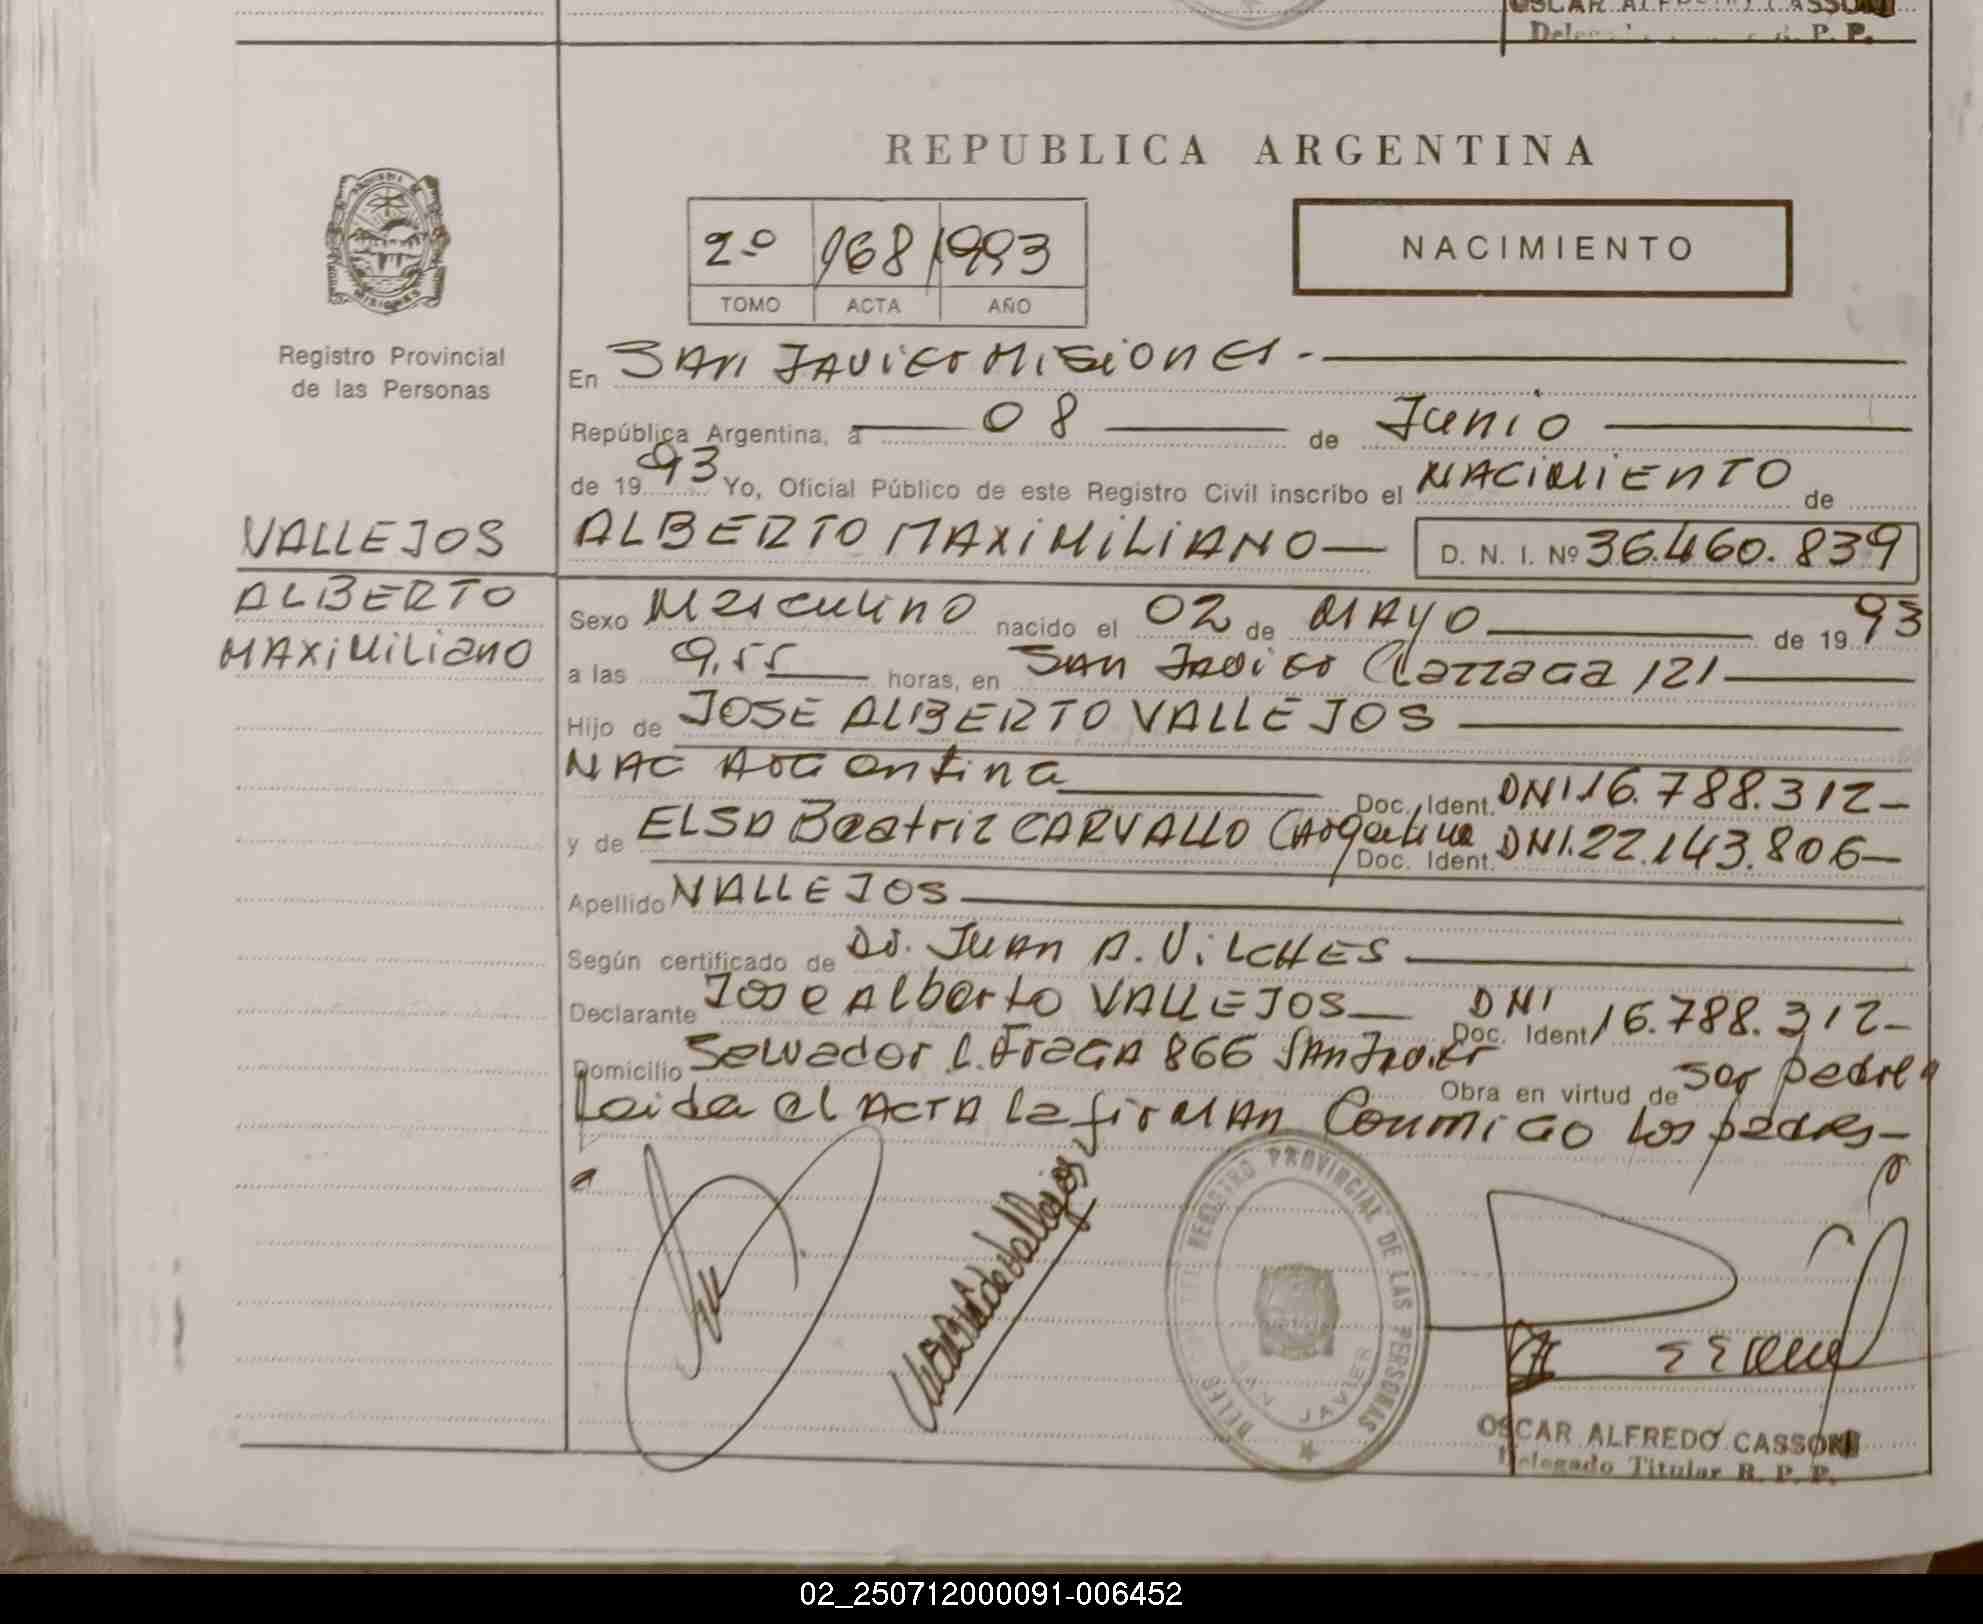 OSCAR ALFREDO CASSONI
P. P.
REPUBLICA ARGENTINA
2º 168 1993
TOMO ACTA AÑO
NACIMIENTO
MISIONES
Registro Provincial
de las Personas
En SAN JAVIER MISIONES.-
República Argentina, a 08 de Junio
de 1993 Yo, Oficial Público de este Registro Civil inscribo el NACIMIENTO de
VALLEJOS
ALBERTO MAXIMILIANO D. N. I. Nº 36.460.839
ALBERTO
MAXIMILIANO
Sexo Masculino nacido el 02 de MAYO de 1993
a las 9,55 horas, en San Javier 121
Hijo de JOSE ALBERTO VALLEJOS
NAC Argentina Doc. Ident. DNI 16.788.312-
y de ELSA Beatriz CARVALLO (Argentina Doc. Ident. DNI.22.143.806-
Apellido VALLEJOS
Según certificado de Dr. Juan A. VILCHES
Declarante Jose Alberto VALLEJOS DNI Doc. Ident. 16.788.312-
Domicilio Salvador L. Fraga 866 San Javier Obra en virtud de ser padre
Leida el ACTA la firman Conmigo los padres-
REGISTRO PROVINCIAL DE LAS PERSONAS
SAN JAVIER
OSCAR ALFREDO CASSONI
Delegado Titular R. P. P.
02_250712000091-006452